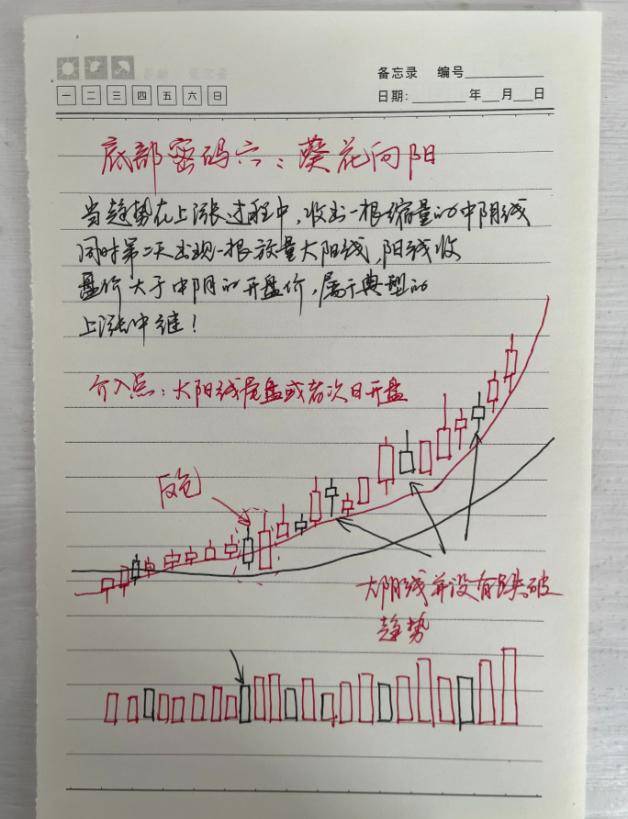 备忘录 编号
一 二 三 四 五 六 日
日期: 年 月 日
底部密码六:葵花向阳
当趋势在上涨过程中,收出一根缩量的中阴线
同时第二天出现一根放量大阳线,阳线收
盘价大于中阴的开盘价,属于典型的
上涨中继!
介入点:大阳线尾盘或者次日开盘
反包
大阴线并没有跌破
趋势